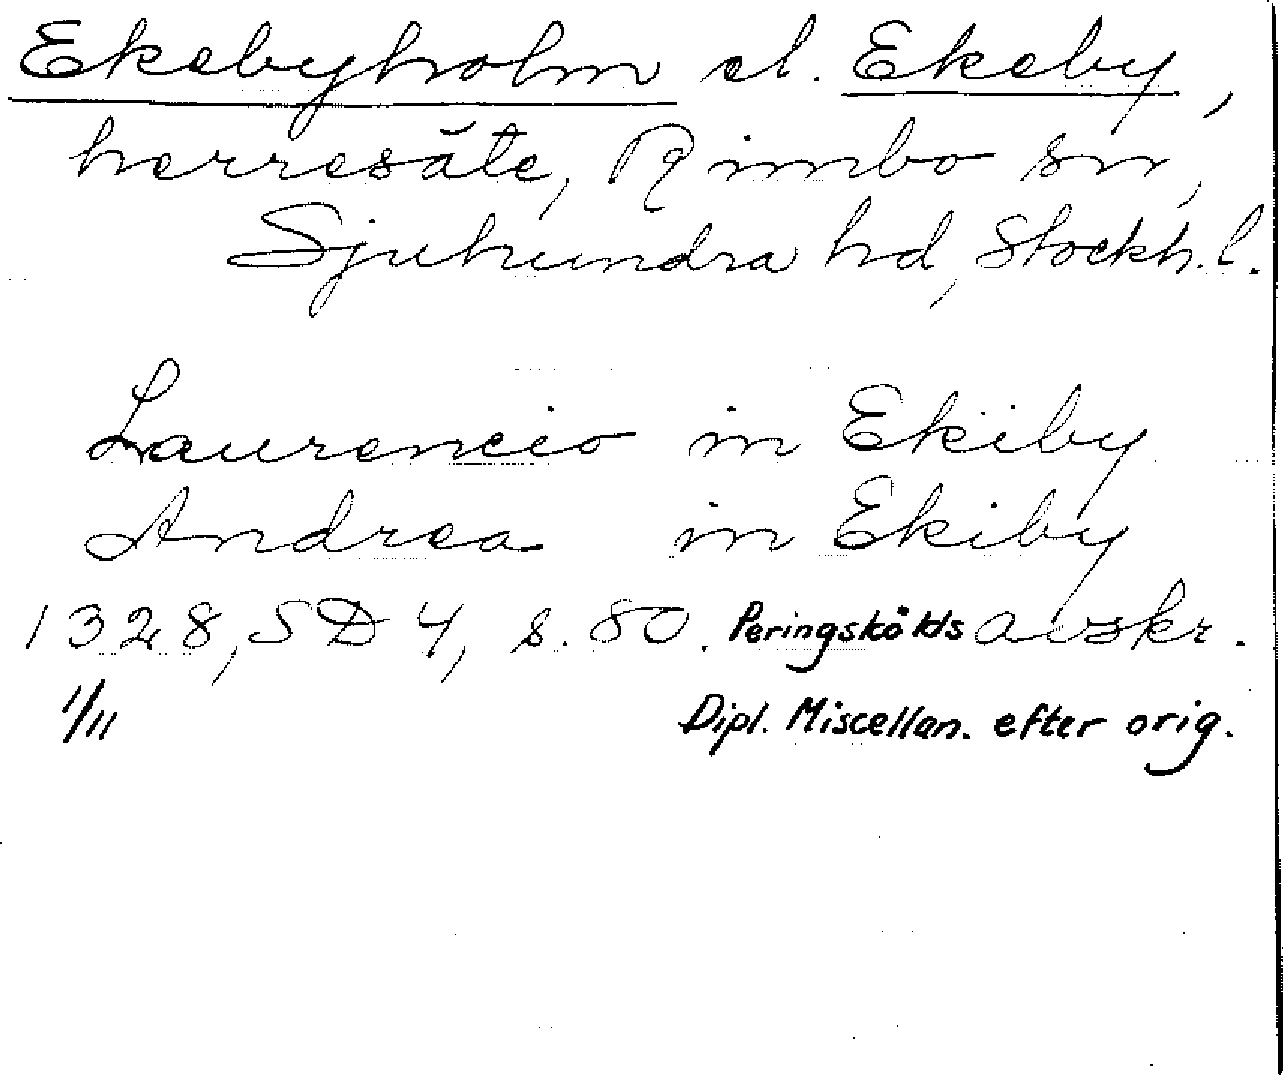 Ekebyholm el. Ekeby,
herresäte, Rimbo sn,
Sjuhundra hd, Stockh. l.
Laurencio in Ekiby
Andrea in Ekiby
1328, SD 4, s. 80. Peringskölds avskr.
1/11 Dipl. Miscellan. efter orig.